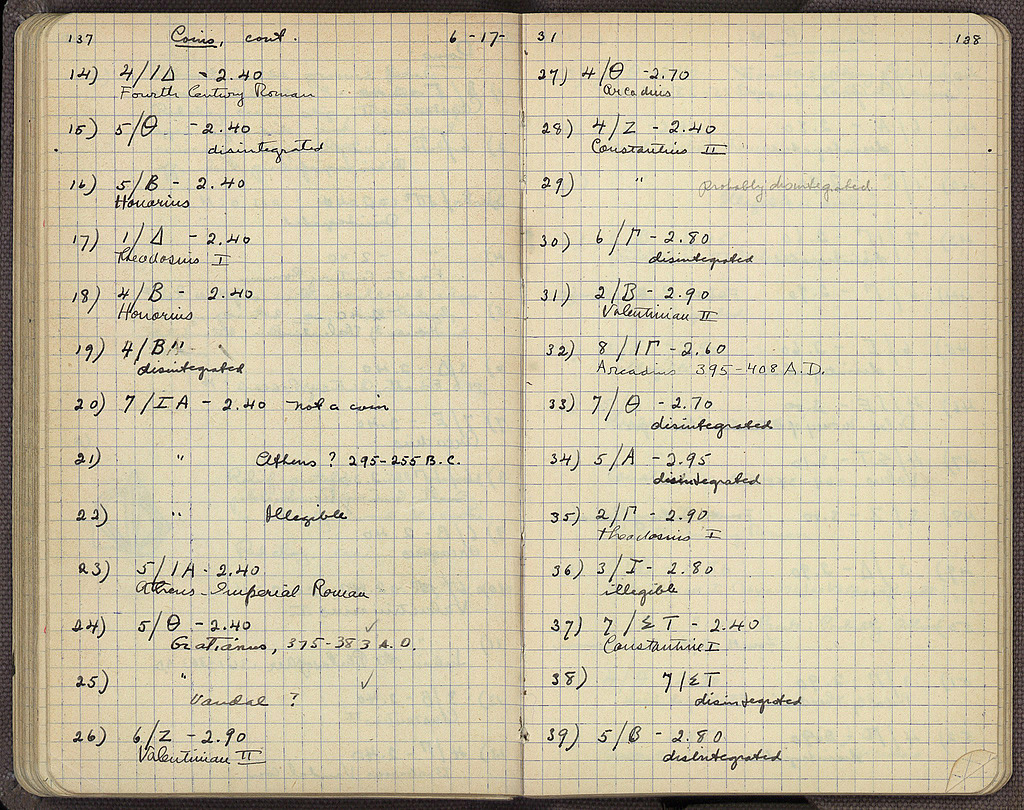 137 Coins, cont. 6-17-
14) 4/ΙΔ - 2.40
Fourth Century Roman
15) 5/Θ - 2.40
disintegrated
16) 5/B - 2.40
Honorius
17) 1/Δ - 2.40
Theodosius I
18) 4/B - 2.40
Honorius
19) 4/B "
disintegrated
20) 7/IA - 2.40 not a coin
21) " Athens ? 295-255 B.C.
22) " Illegible
23) 5/IA - 2.40
Athens - Imperial Roman
24) 5/Θ - 2.40 ✓
Gratianus, 375-383 A.D.
25) " ✓
Vandal ?
26) 6/Z - 2.90
Valentinian II
31 138
27) 4/Θ - 2.70
Arcadius
28) 4/Z - 2.40
Constantius II
29) " probably disintegrated
30) 6/Γ - 2.80
disintegrated
31) 2/B - 2.90
Valentinian II
32) 8/ΙΓ - 2.60
Arcadius 395-408 A.D.
33) 7/Θ - 2.70
disintegrated
34) 5/A - 2.95
disintegrated
35) 2/Γ - 2.90
Theodosius I
36) 3/I - 2.80
illegible
37) 7/ΣT - 2.40
Constantine I
38) 7/ΣT
disintegrated
39) 5/B - 2.80
disintegrated